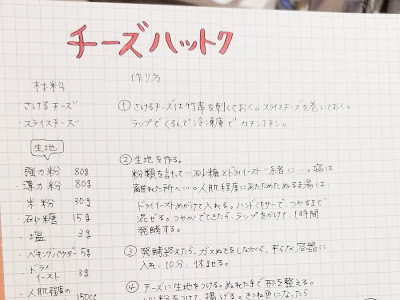 チーズハットク
材料
さけるチーズ
・スライスチーズ
生地
強力粉 80g
薄力粉 80g
米粉 30g
砂糖 15g
・塩 3g
・ベーキングパウダー 5g
ドライイースト 3g
・人肌程度の 150cc
作り方
①さけるチーズは竹串を刺しておく。スライスチーズを巻いておく。
ラップでくるんで冷凍庫でカチンコチン。
②生地を作る。
粉類を計って…砂糖とドライイースト一緒に…。塩は
離れた所へ…。人肌程度にあたためたぬるま湯は
ドライイーストめがけて入れる。ハンドミキサーで、つやがでるまで
混ぜる。つやがでてきたら、ラップをかけて、1時間
発酵する。
③発酵終えたら、ガスぬきをしながら、平らな容器に
入れ、10分、休ませる。
④チーズに生地をつける。ぬれた手で形を整える。
パン粉をつけて、揚げる。きつね色になったら、